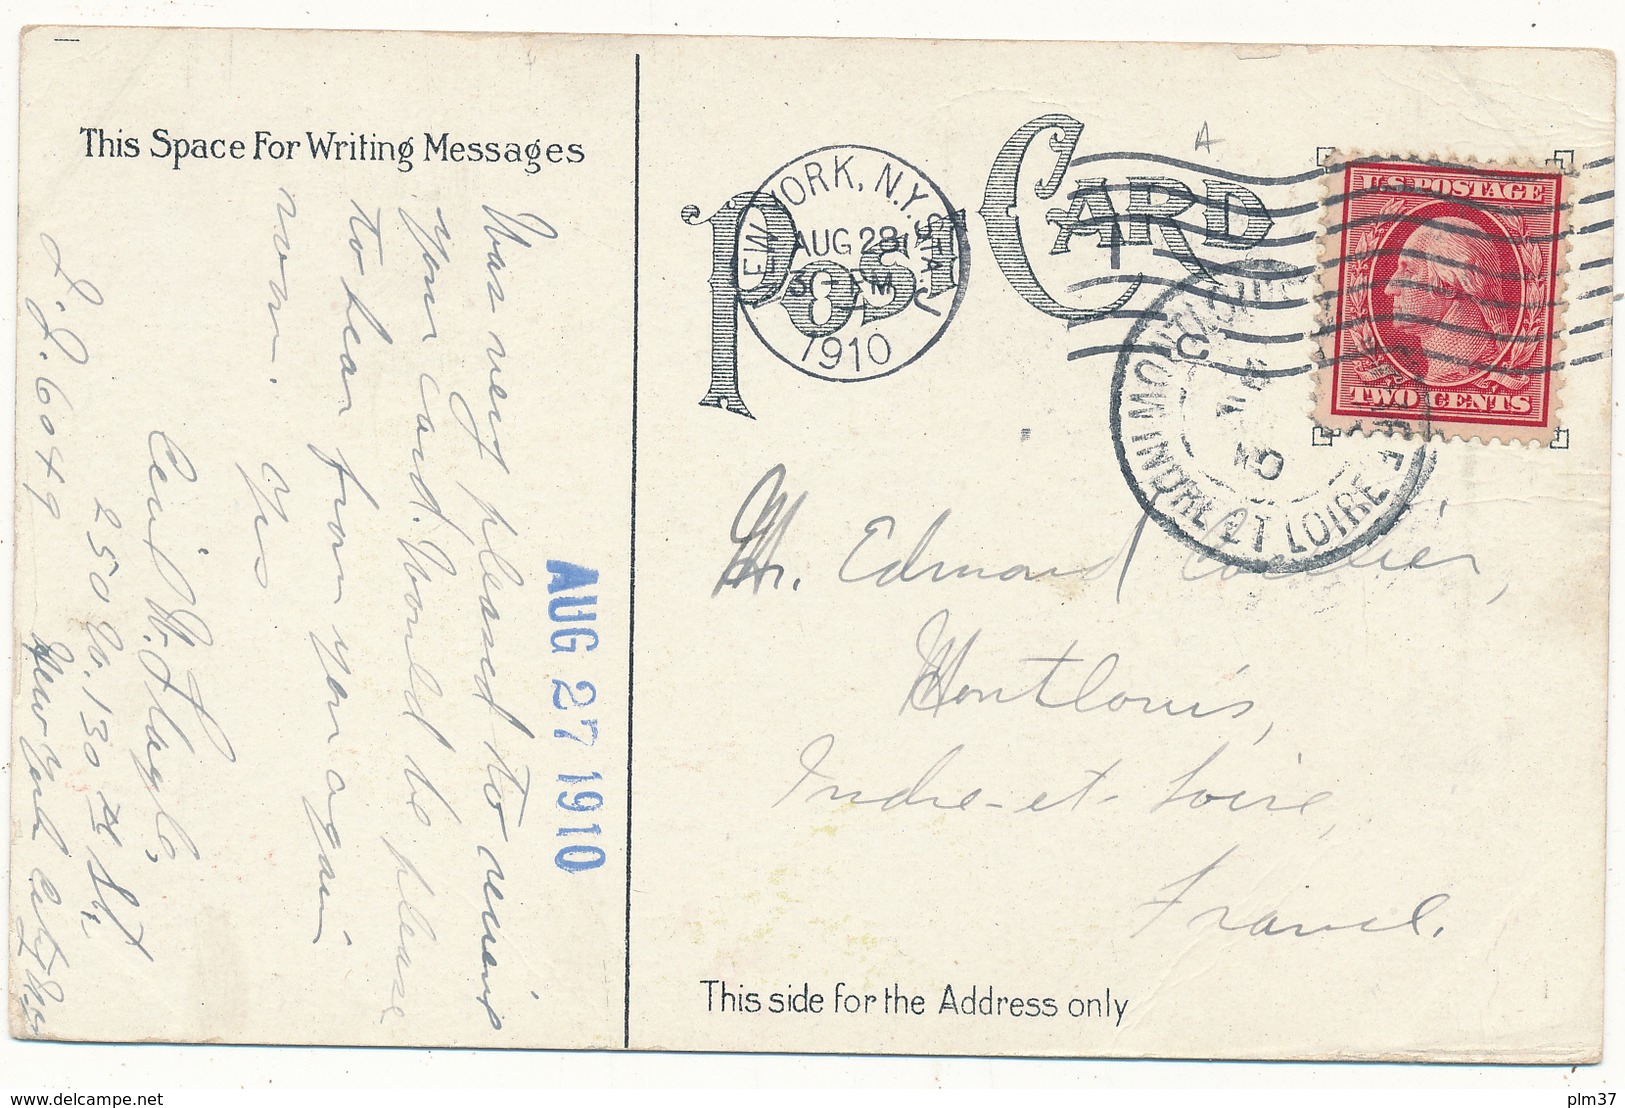 This Space For Writing Messages
Was very pleased to receive
your card. Would be please
to hear from you again
soon.
Yrs
Cecil W. Slagle,
250 W. 130th St.
New York City
L.S. 6049
AUG 27 1910
POST CARD
NEW YORK, N.Y. STA. J
AUG 28
30 PM
1910
1
U.S. POSTAGE
TWO CENTS
MONTLOUIS
INDRE ET LOIRE
Mr. Edmond
Montlouis,
Indre-et-Loire,
France.
This side for the Address only
www.delcampe.net
plm37